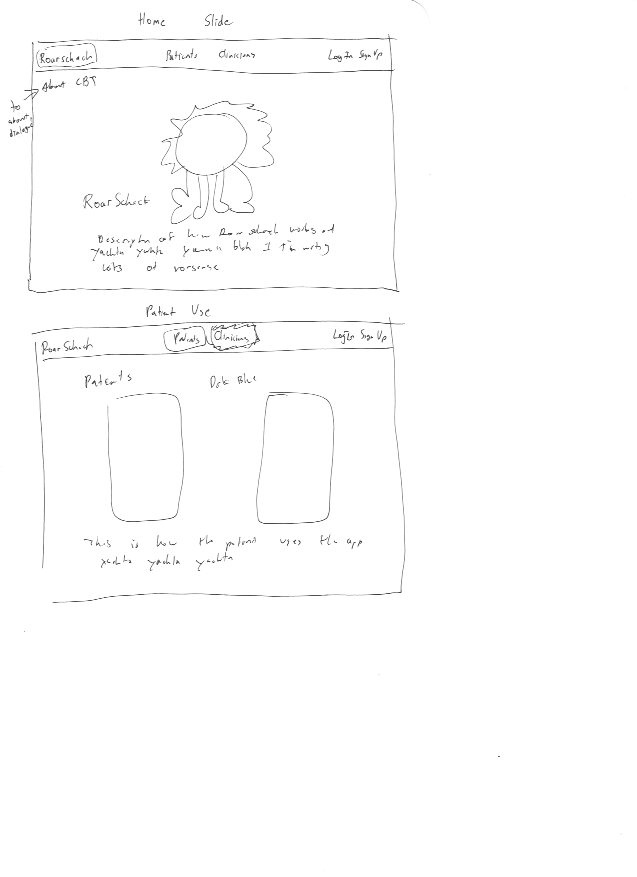 Home Slide
Roarschach Patients Clinicians Log In Sign Up
About CBT
to about dialogue
RoarSchach
Description of how Roarschach works and
yachta yachta yamma blah I I'm writing
lots of nonsense
Patient Use
RoarSchach Patients Clinicians Log In Sign Up
Patients Dark Blue
This is how the patient uses the app
yachta yachta yachta